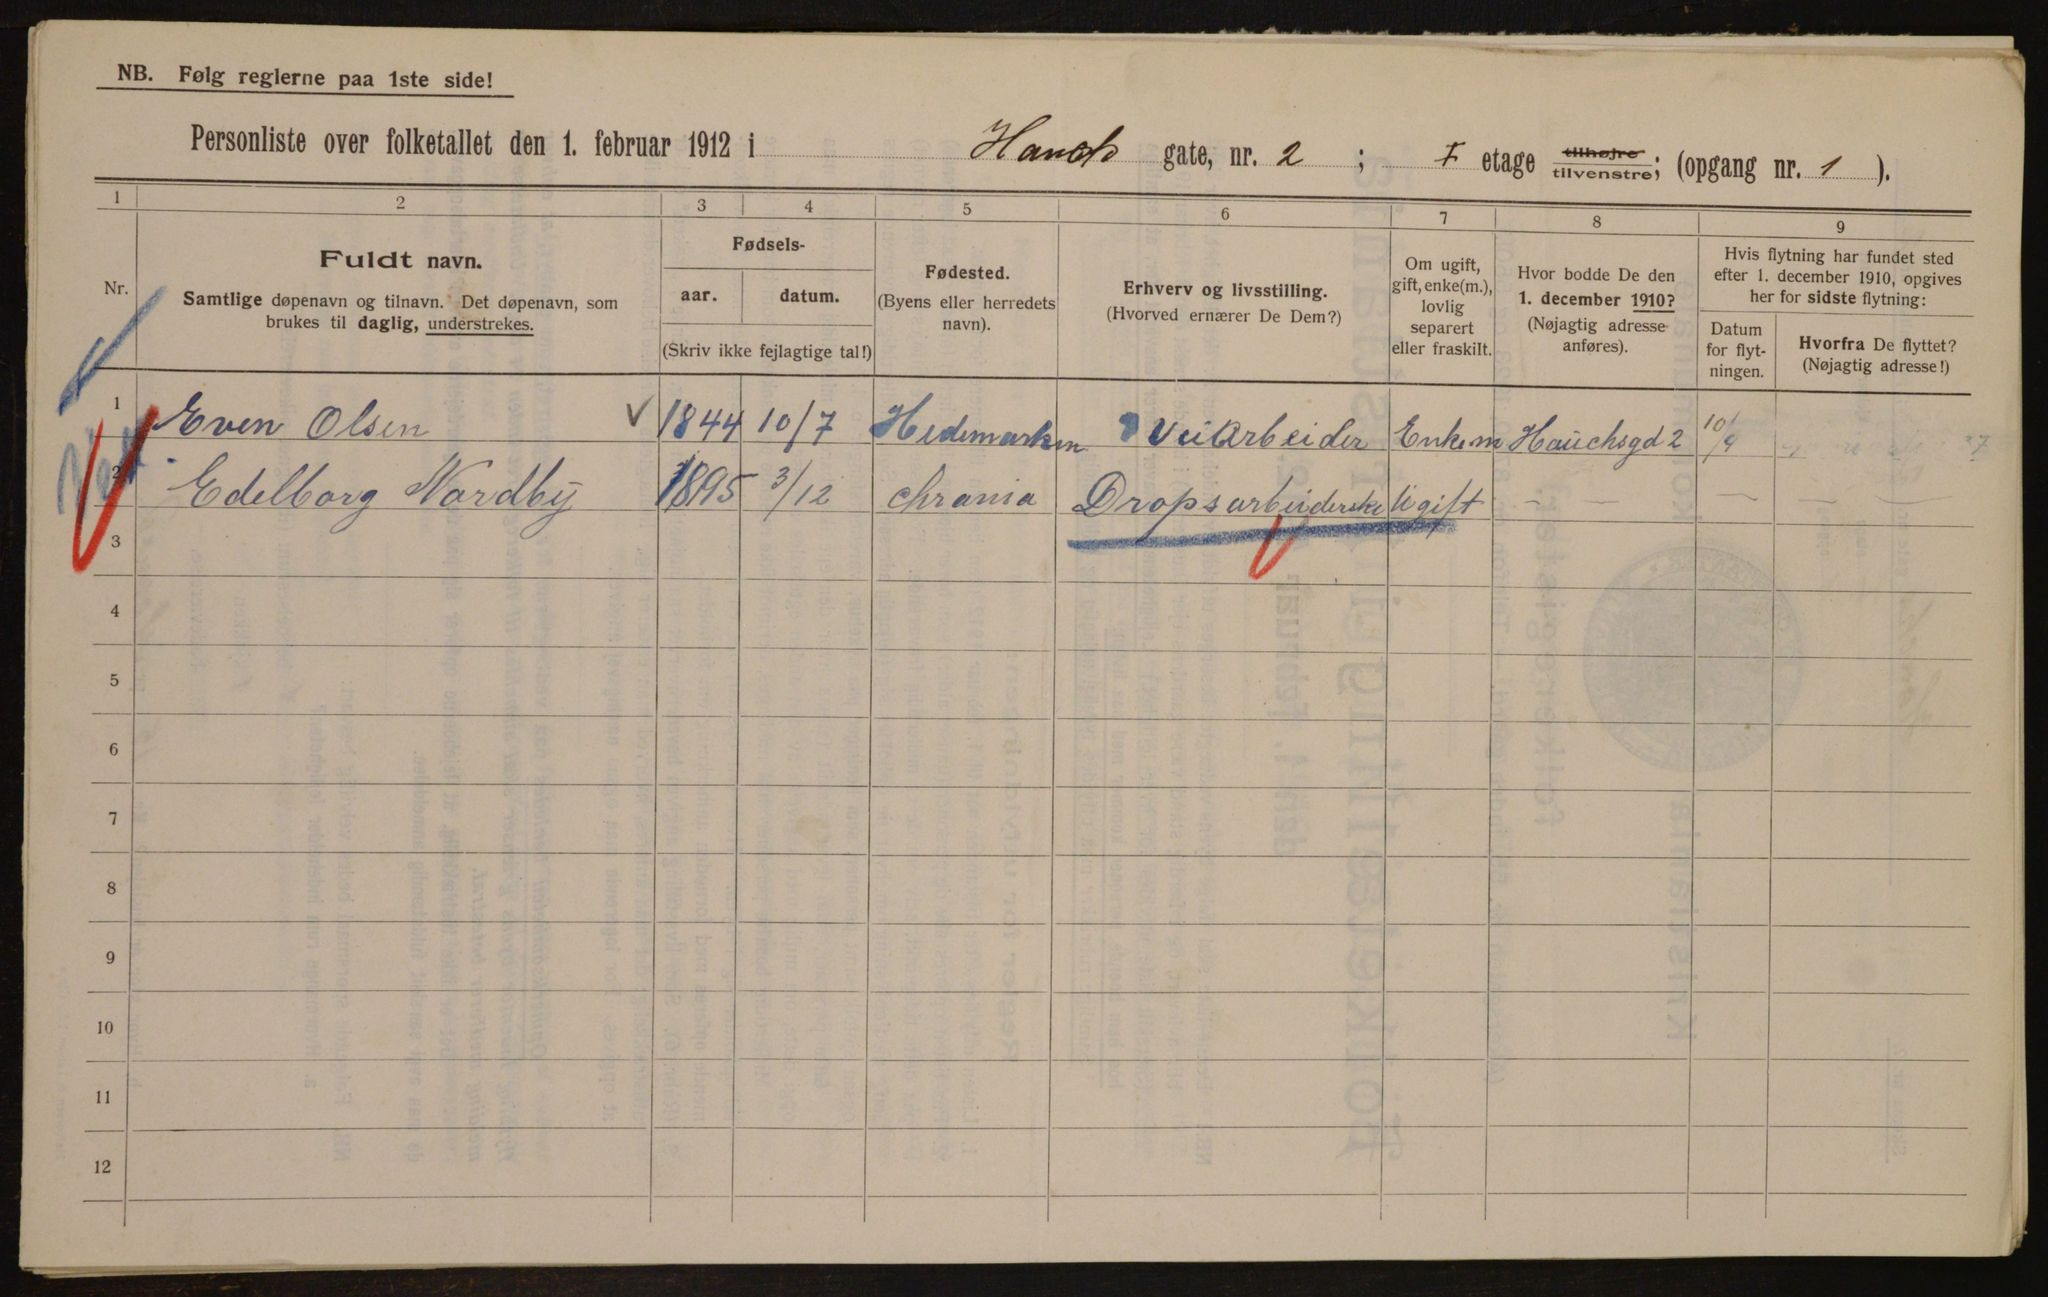 NB. Følg reglerne paa 1ste side!
Personliste over folketallet den 1. februar 1912 i Hauchs gate, nr. 2 ; I etage tilhøjre tilvenstre; (opgang nr. 1 ).
1 2 3 4 5 6 7 8 9
Nr.
Fuldt navn.
Samtlige døpenavn og tilnavn. Det døpenavn, som
brukes til daglig, understrekes.
Fødsels-
aar. datum.
(Skriv ikke fejlagtige tal!)
Fødested.
(Byens eller herredets
navn).
Erhverv og livsstilling.
(Hvorved ernærer De Dem?)
Om ugift,
gift, enke(m.),
lovlig
separert
eller fraskilt.
Hvor bodde De den
1. december 1910?
(Nøjagtig adresse
anføres).
Hvis flytning har fundet sted
efter 1. december 1910, opgives
her for sidste flytning:
Datum
for flyt-
ningen.
Hvorfra De flyttet?
(Nøjagtig adresse!)
1 Even Olsen 1844 10/7 Hedemarken Veiarbeider Enkem Hauchsgd 2 10/9
2 Edelborg Nordby 1895 3/12 Chrania Dropsarbeiderske Ugift - - - -
3
4
5
6
7
8
9
10
11
12